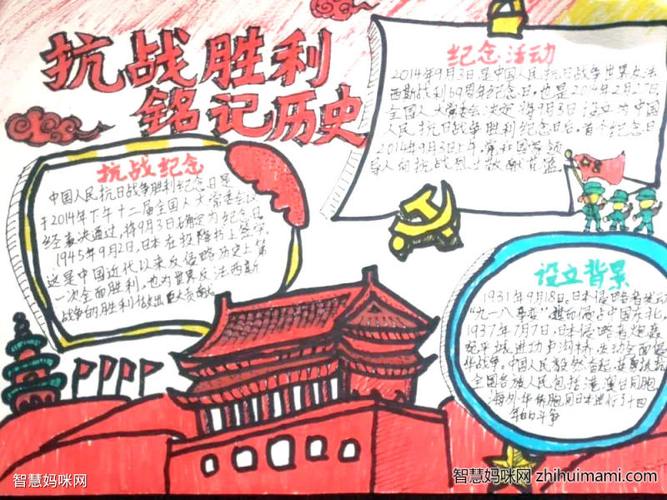 抗战胜利
铭记历史
纪念活动
2014年9月3日是中国人民抗日战争世界反法
西斯战利69周年纪念日,也是2014年2月27日
全国人大常委会决定将9月3日设立为中国
人民抗日战争胜利纪念日后,首个纪念日
2014年9月3日上午,
抗战纪念
中国人民抗日战争胜利纪念日是
于2014年下午十二届全国人大常委会
经表决通过,将9月3日确定为纪念日
1945年9月2日,日本在投降书上签字
这是中国近代以来反侵略历史上第
一次全面胜利,也为世界反法西斯
战争的胜利做出巨大贡献
设立背景
1931年9月18日,日本侵略者发动
"九一八事变"
1937年7月7日,日本侵略者炮轰
全面侵
华战争。中国人民
全国各族人民包括港澳台同胞
海外华侨胞同日本进行了十四
年的斗争
智慧妈咪网
智慧妈咪网 zhihuimami.com